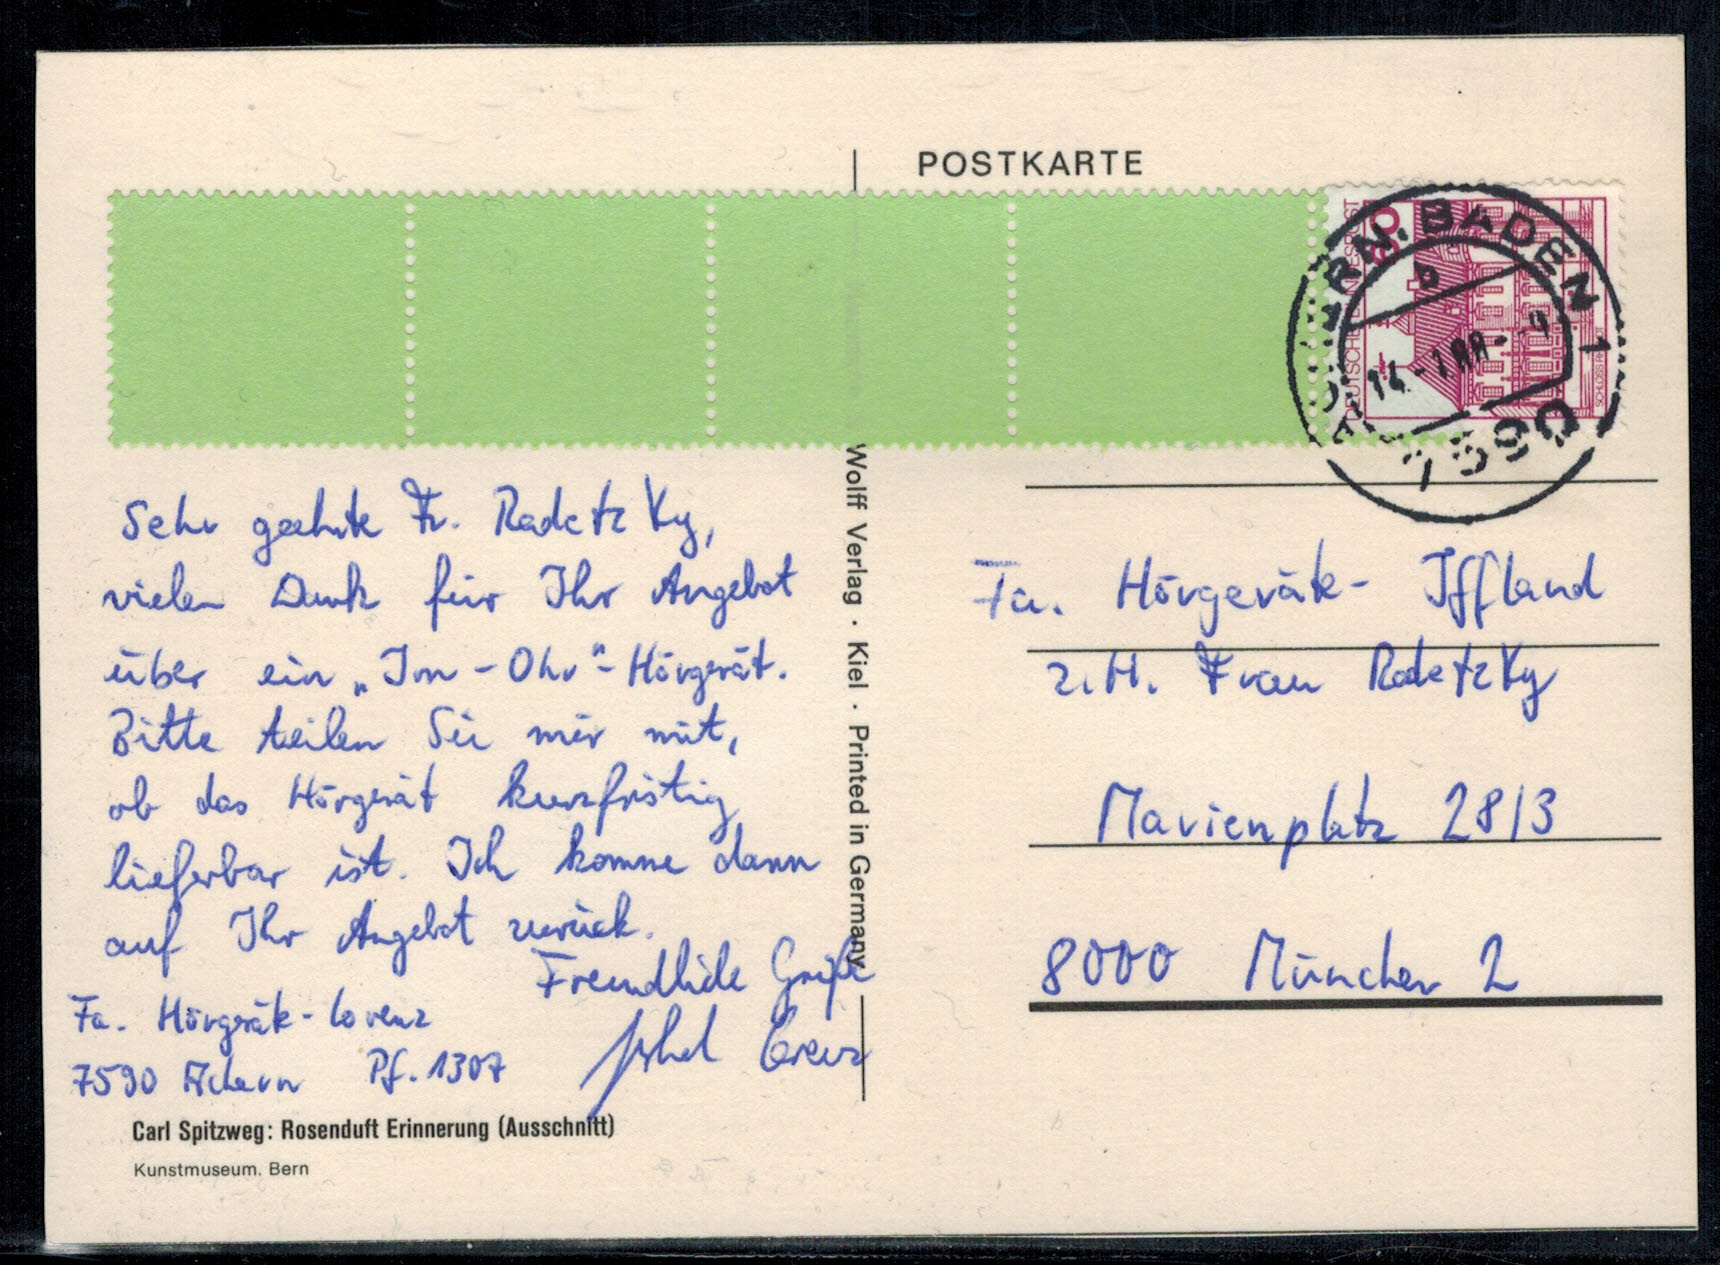 POSTKARTE
60
DEUTSCHE BUNDESPOST
ACHERN, BADEN 1
b
14.-1.88-
7590
Sehr geehrte Fr. Radetzky,
vielen Dank für Ihr Angebot
über ein „Im-Ohr"-Hörgerät.
Bitte teilen Sie mir mit,
ob das Hörgerät kurzfristig
lieferbar ist. Ich komme dann
auf Ihr Angebot zurück.
Freundliche Grüße
Fa. Hörgeräte-Lorenz
7590 Achern Pf. 1307
Carl Spitzweg: Rosenduft Erinnerung (Ausschnitt)
Kunstmuseum. Bern
Wolff Verlag · Kiel · Printed in Germany
Fa. Hörgeräte- Iffland
z.H. Frau Radetzky
Marienplatz 28/3
8000 München 2